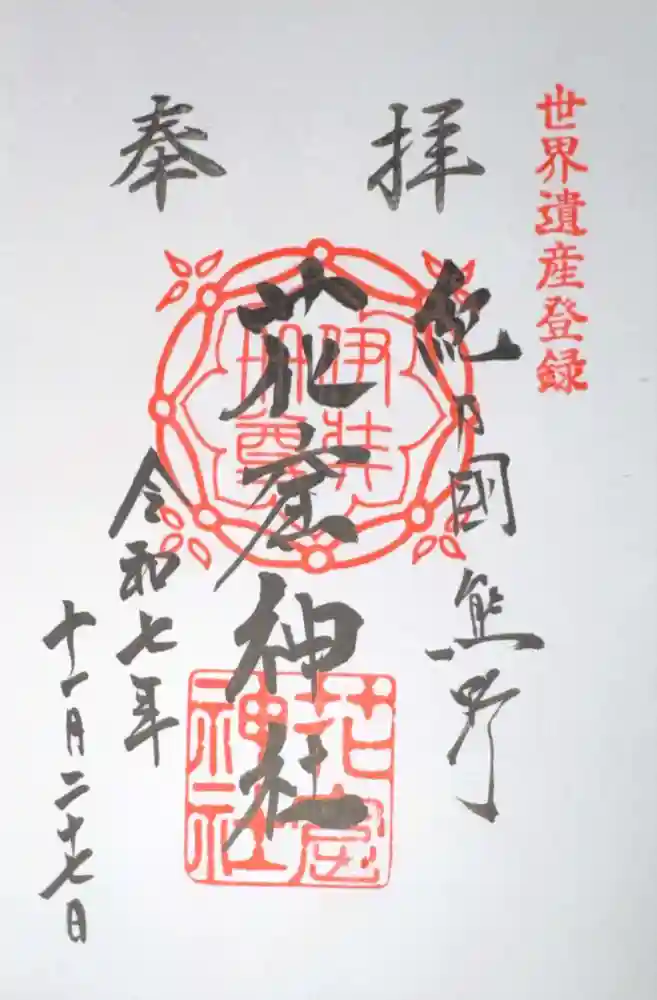 世界遺産登録
奉拝
紀乃國熊野
花窟神社
令和七年
十一月二十七日
伊弉
冊尊
花窟
神社